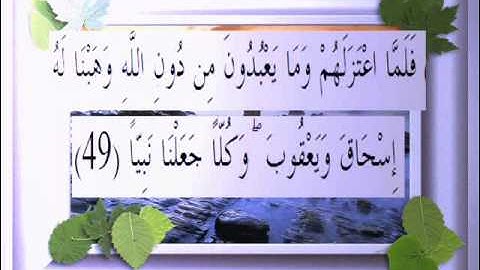 فَلَمَّا اعْتَزَلَهُمْ وَمَا يَعْبُدُونَ مِن دُونِ اللَّهِ وَهَبْنَا لَهُ
إِسْحَاقَ وَيَعْقُوبَ ۖ وَكُلًّا جَعَلْنَا نَبِيًّا (49)